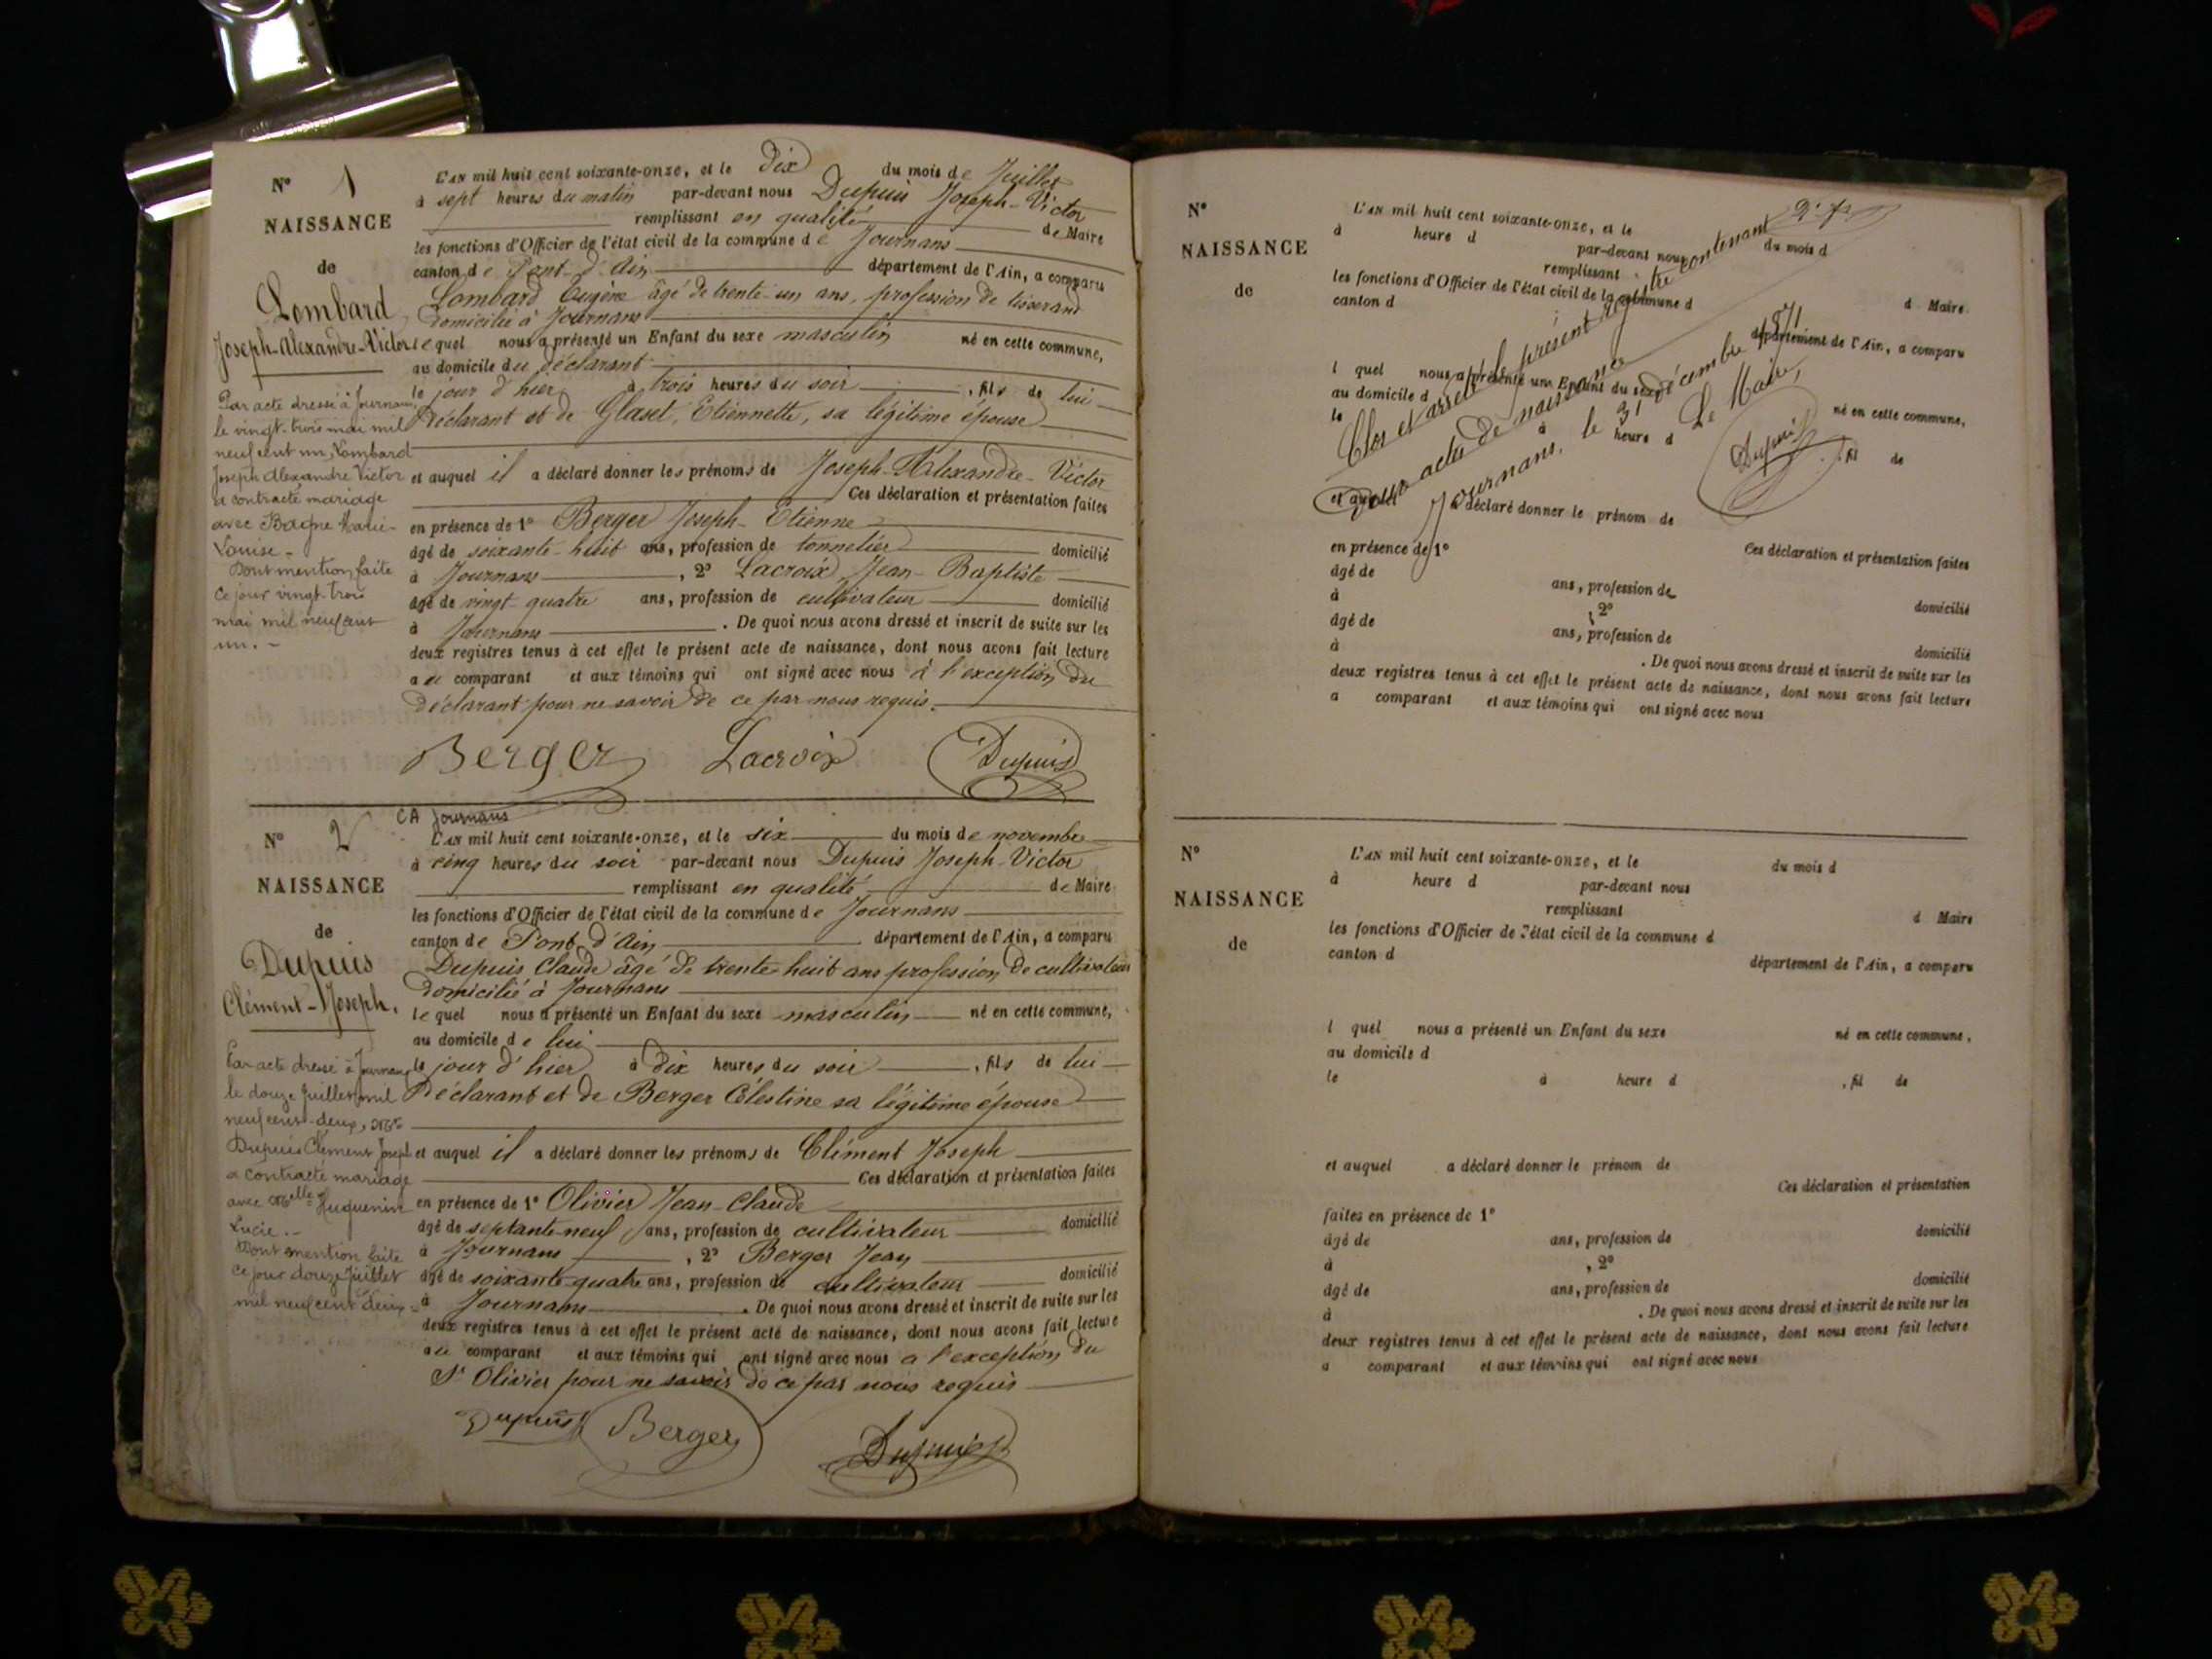 N° 1
NAISSANCE
de
Lombard
Joseph-Alexandre-Victor
Par acte dressé à Journans,
le vingt-trois mai mil
neuf cent un, Lombard
Joseph Alexandre Victor
a contracté mariage
avec Marie-
Louise.-
Dont mention faite
ce jour vingt-trois
mai mil neuf cent
un.-
L'AN mil huit cent soixante-onze, et le dix du mois de Juillet
à sept heures du matin par-devant nous Dupuis Joseph-Victor
remplissant en qualité de Maire
les fonctions d'Officier de l'état civil de la commune de Journans
canton de Pont-d'Ain département de l'Ain, a comparu
Lombard Eugène âgé de trente-un ans, profession de tisserand
domicilié à Journans
lequel nous a présenté un Enfant du sexe masculin né en cette commune,
au domicile du déclarant
le jour d'hier à trois heures du soir, fils de lui
Déclarant et de Etiennette, sa légitime épouse
et auquel il a déclaré donner les prénoms de Joseph-Alexandre-Victor
Ces déclaration et présentation faites
en présence de 1° Berger Joseph-Etienne
âgé de soixante-huit ans, profession de tonnelier domicilié
à Journans, 2° Lacroix Jean-Baptiste
âgé de vingt-quatre ans, profession de cultivateur domicilié
à Journans. De quoi nous avons dressé et inscrit de suite sur les
deux registres tenus à cet effet le présent acte de naissance, dont nous avons fait lecture
au comparant et aux témoins qui ont signé avec nous à l'exception du
Déclarant pour ne savoir de ce par nous requis.
Berger Lacroix Dupuis
CA Journans
N° 2
NAISSANCE
de
Dupuis
Clément-Joseph.
Par acte dressé à Journans
le douze Juillet mil
neuf cent-deux, Mr
Dupuis Clément Joseph
a contracté mariage
avec Melle Huguenin
Lucie.-
Dont mention faite
ce jour douze Juillet
mil neuf cent deux.-
L'AN mil huit cent soixante-onze, et le six du mois de novembre
à cinq heures du soir par-devant nous Dupuis Joseph-Victor
remplissant en qualité de Maire
les fonctions d'Officier de l'état civil de la commune de Journans
canton de Pont-d'Ain département de l'Ain, a comparu
Dupuis Claude âgé de trente-huit ans profession de cultivateur
domicilié à Journans
lequel nous a présenté un Enfant du sexe masculin né en cette commune,
au domicile de lui
le jour d'hier à dix heures du soir, fils de lui
Déclarant et de Berger Célestine sa légitime épouse
et auquel il a déclaré donner les prénoms de Clément Joseph
Ces déclaration et présentation faites
en présence de 1° Olivier Jean-Claude
âgé de septante-neuf ans, profession de cultivateur domicilié
à Journans, 2° Berger Jean
âgé de soixante-quatre ans, profession de cultivateur domicilié
à Journans. De quoi nous avons dressé et inscrit de suite sur les
deux registres tenus à cet effet le présent acte de naissance, dont nous avons fait lecture
au comparant et aux témoins qui ont signé avec nous a l'exception du
Sr Olivier pour ne savoir de ce par nous requis
Dupuis Berger Dupuis
N°
NAISSANCE
de
L'AN mil huit cent soixante-onze, et le du mois d
à heure d par-devant nous
remplissant d Maire
les fonctions d'Officier de l'état civil de la commune d
canton d département de l'Ain, a comparu
l quel nous a présenté un Enfant du sexe né en cette commune,
au domicile d
le à heure d, fil de
et auquel a déclaré donner le prénom de
Ces déclaration et présentation faites
en présence de 1°
âgé de ans, profession de domicilié
à, 2°
âgé de ans, profession de domicilié
à. De quoi nous avons dressé et inscrit de suite sur les
deux registres tenus à cet effet le présent acte de naissance, dont nous avons fait lecture
a comparant et aux témoins qui ont signé avec nous
Clos et arrêté le présent registre contenant
deux actes de naissance
Journans, le 31 décembre 1871
Le Maire,
Dupuis
N°
NAISSANCE
de
L'AN mil huit cent soixante-onze, et le du mois d
à heure d par-devant nous
remplissant d Maire
les fonctions d'Officier de l'état civil de la commune d
canton d département de l'Ain, a comparu
l quel nous a présenté un Enfant du sexe né en cette commune,
au domicile d
le à heure d, fil de
et auquel a déclaré donner le prénom de
Ces déclaration et présentation
faites en présence de 1°
âgé de ans, profession de domicilié
à, 2°
âgé de ans, profession de domicilié
à. De quoi nous avons dressé et inscrit de suite sur les
deux registres tenus à cet effet le présent acte de naissance, dont nous avons fait lecture
a comparant et aux témoins qui ont signé avec nous